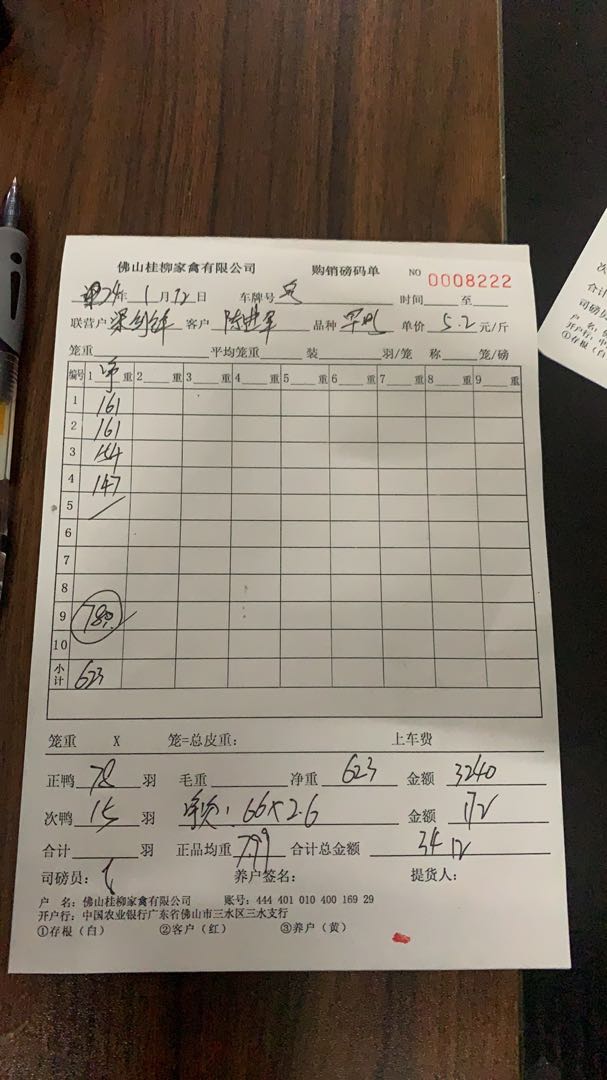 佛山桂柳家禽有限公司 购销磅码单 NO 0008222
24年 1月12日 车牌号 时间 至
联营户 客户 陈进军 品种 单价 5.2 元/斤
笼重 平均笼重 装 羽/笼 称 笼/磅
编号 1 净 重 2 重 3 重 4 重 5 重 6 重 7 重 8 重 9 重
1 161
2 161
3 154
4 147
5
6
7
8
9 78只
10
小计 623
笼重 X 笼=总皮重: 上车费
正鸭 78 羽 毛重 净重 623 金额 3240
次鸭 15 羽 66×2.6 金额 172
合计 羽 正品均重 7.99 合计总金额 3412
司磅员: 养户签名: 提货人:
户 名: 佛山桂柳家禽有限公司 账号: 444 401 010 400 169 29
开户行: 中国农业银行广东省佛山市三水区三水支行
①存根(白) ②客户(红) ③养户(黄)
次
合计
司磅员
户 名:
开户行:
①存根(白